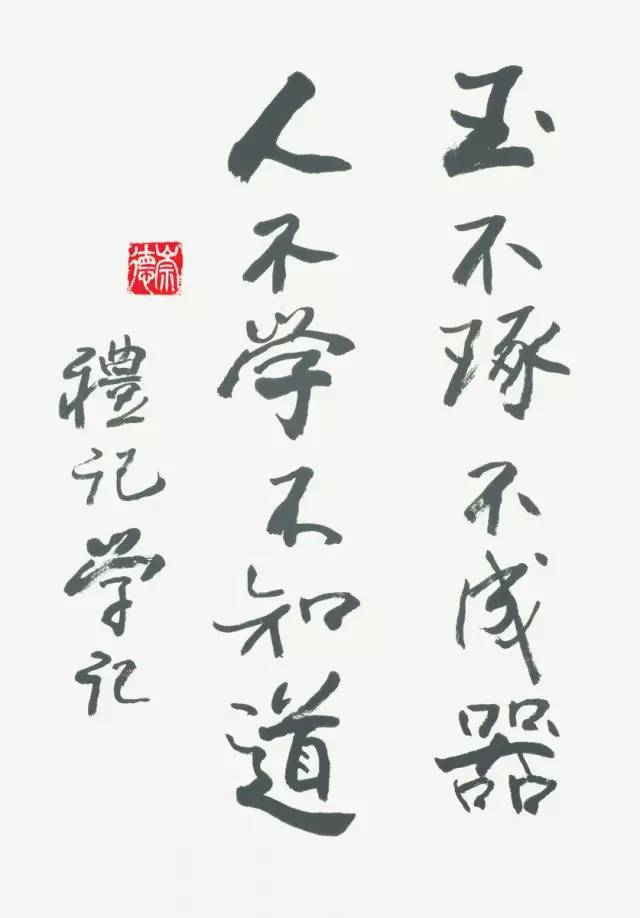 玉不琢不成器
人不学不知道
禮记学记
崇德